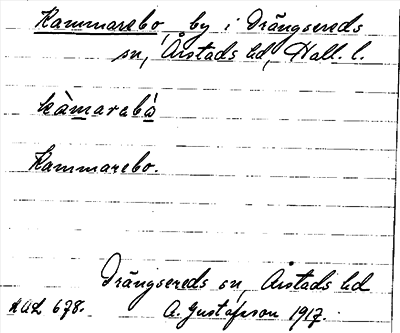 Kammarebo, by i Drängsereds
sn, Årstads hd, Hall. l.
kàmarabó
Kammarebo.
Drängsereds sn, Årstads hd
AUL 678. A. Gustafsson 1917.